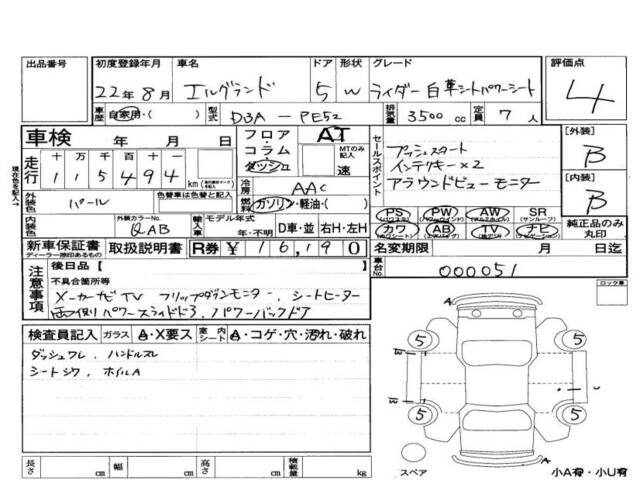 出品番号 初度登録年月 車名 ドア 形状 グレード 評価点
22年8月 エルグランド 5 W ライダー白革シートパワーシート 4
車歴 自家用・( ) 型式 DBA-PE52 排気量 3500cc 定員 7人
車検 年 月 日 フロア・コラム・ダッシュ AT MTのみ記入 速 セールスポイント プッシュスタート [外装] B
走行 十 万 千 百 十 一 インテリキー×2
1 1 5 4 9 4 km 冷房 AAC アラウンドビューモニター [内装] B
外装色 パール 色替車は色替と記入 燃料 ガソリン・軽油・( ) PS PW AW SR
内装色 外装カラーNo. QAB 輸入車 モデル年式 年・不明 D車・並 右H・左H カワ AB TV ナビ 純正品のみ丸印
新車保証書 取扱説明書 R券 ¥16,190 名変期限 月 日迄
ディーラー捺印あるもの
現在色を記入
注意事項 後日品【 車台No. 000051
不具合箇所等 ロック車
メーカーナビTV フリップダウンモニター、シートヒーター
両側パワースライドドア、パワーバックドア
検査員記入 ガラス A・X要ス 室内シート A・コゲ・穴・汚れ・破れ
ダッシュワレ、ハンドルスレ
シートシワ、ホイルA
5 5
5 5
スペア 小A有・小U有
長さ cm 幅 cm 高さ cm 積載量 kg